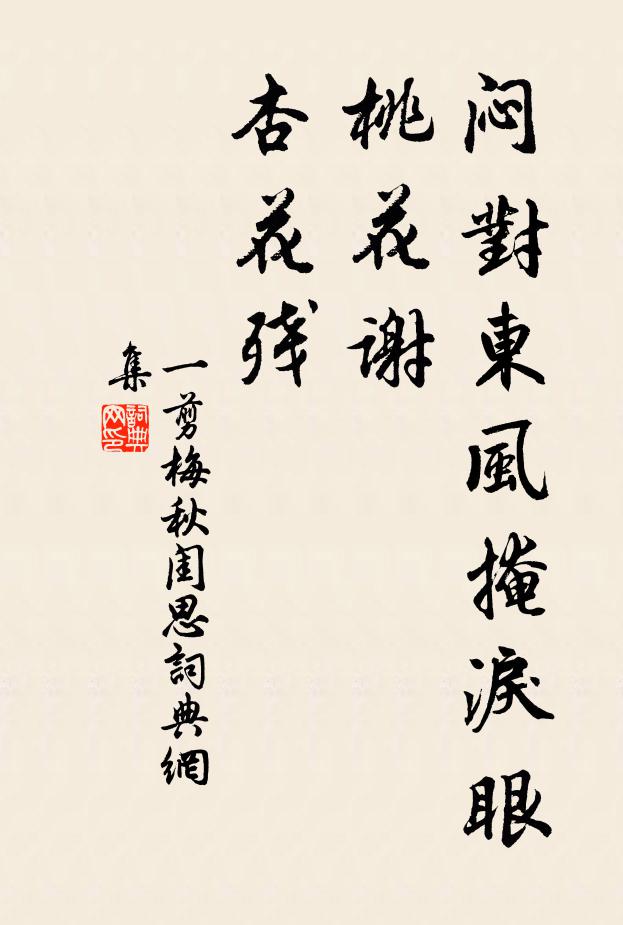 闷對東風掩淚眼
桃花谢
杏花残
一剪梅秋闺思詞典網
集
詞典
网印